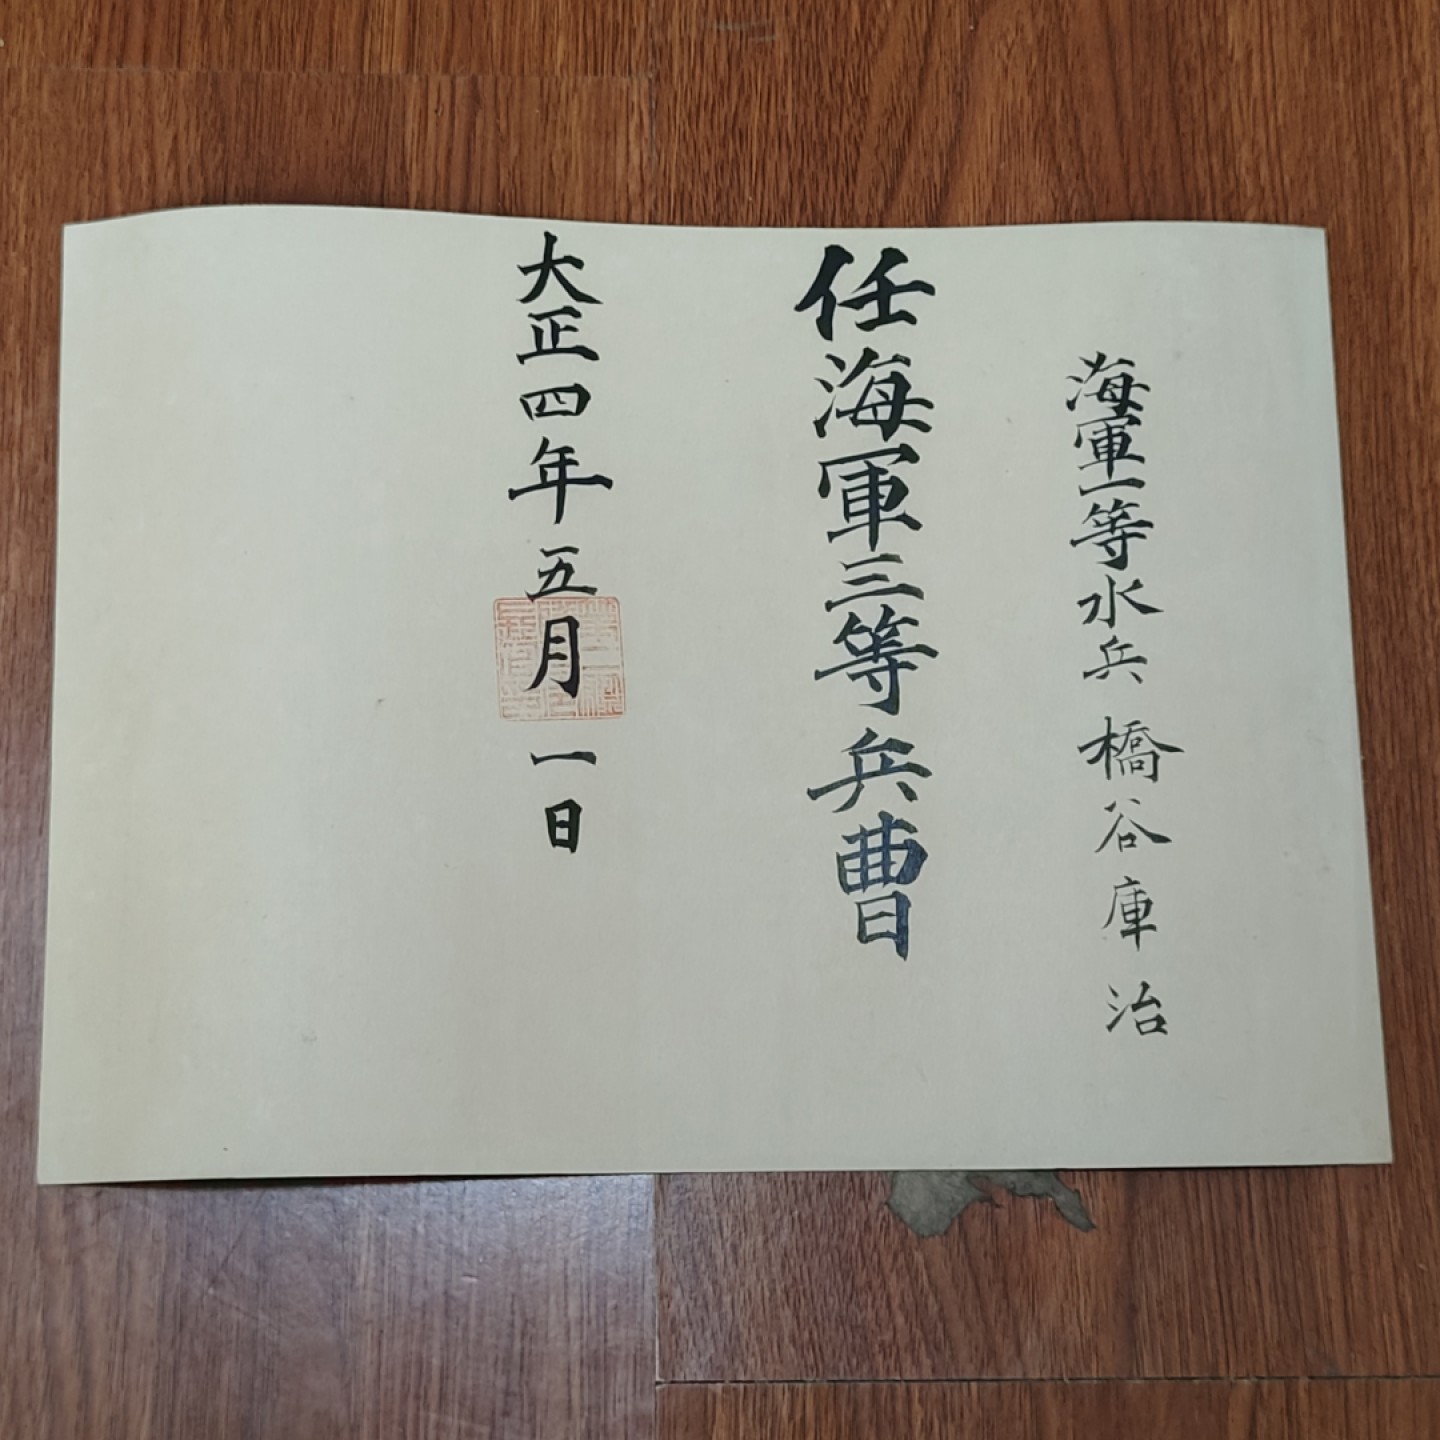 海軍一等水兵 橋谷庫治
任海軍三等兵曹
大正四年五月一日